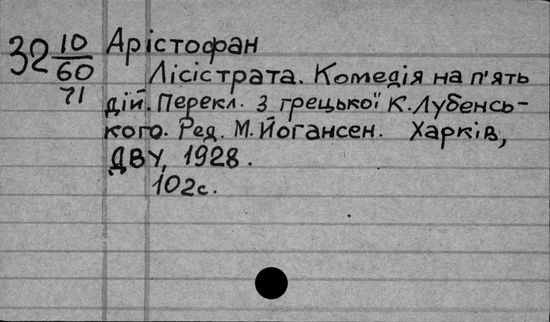 32 10/60 71
Арістофан
Лісістрата. Комедія на п'ять
дій. Перекл. з грецької К. Лубенсь-
кого. Ред. М. Йогансен. Харків,
ДВУ, 1928.
102с.